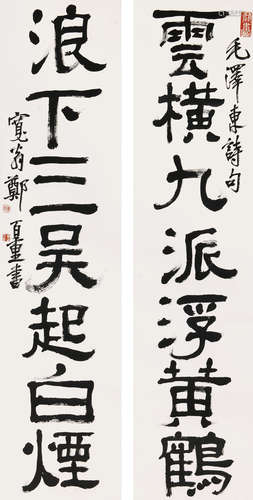 雲橫九派浮黄鶴
毛澤東詩句
浪下三吴起白煙
寬翁鄭百重書